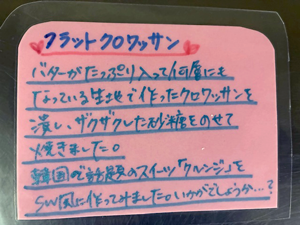 フラットクロワッサン
バターがたっぷり入って何層にも
なっている生地で作ったクロワッサンを
潰し、ザクザクした砂糖をのせて
焼きました。
韓国で話題のスイーツ「クルンジ」を
SW風に作ってみました。いかがでしょうか…?